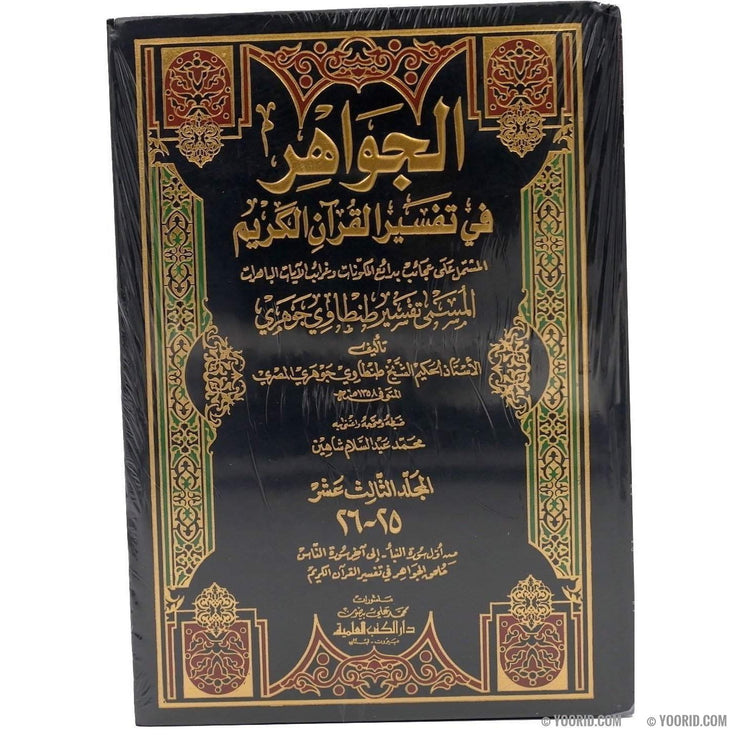 الجَوَاهِر
في تفسير القُرآن الكَريم
المشتمل على عجائب بدائع المكونات وغرائب الآيات الباهرات
المُسَمّى تفسير طنطاوي جَوهَري
تأليف
الأستاذ الحكيم الشيخ طنطاوي جوهري المصري
المتوفى ١٣٥٨ هـ
ضبطه وصححه واعتنى به
محمد عبد السلام شاهين
المجلّد الثالث عشر
٢٥-٢٦
من أول سورة النبأ - إلى آخر سورة الناس
ملحق الجواهر في تفسير القرآن الكريم
منشورات
محمد علي بيضون
دار الكتب العلمية
بيروت - لبنان
© YOORID.COM © YOORID.COM